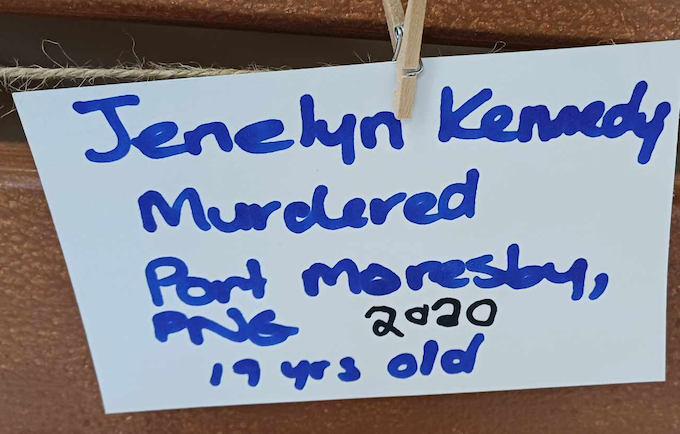 Jenelyn Kennedy
Murdered
Port Moresby,
PNG 2020
19 yrs old